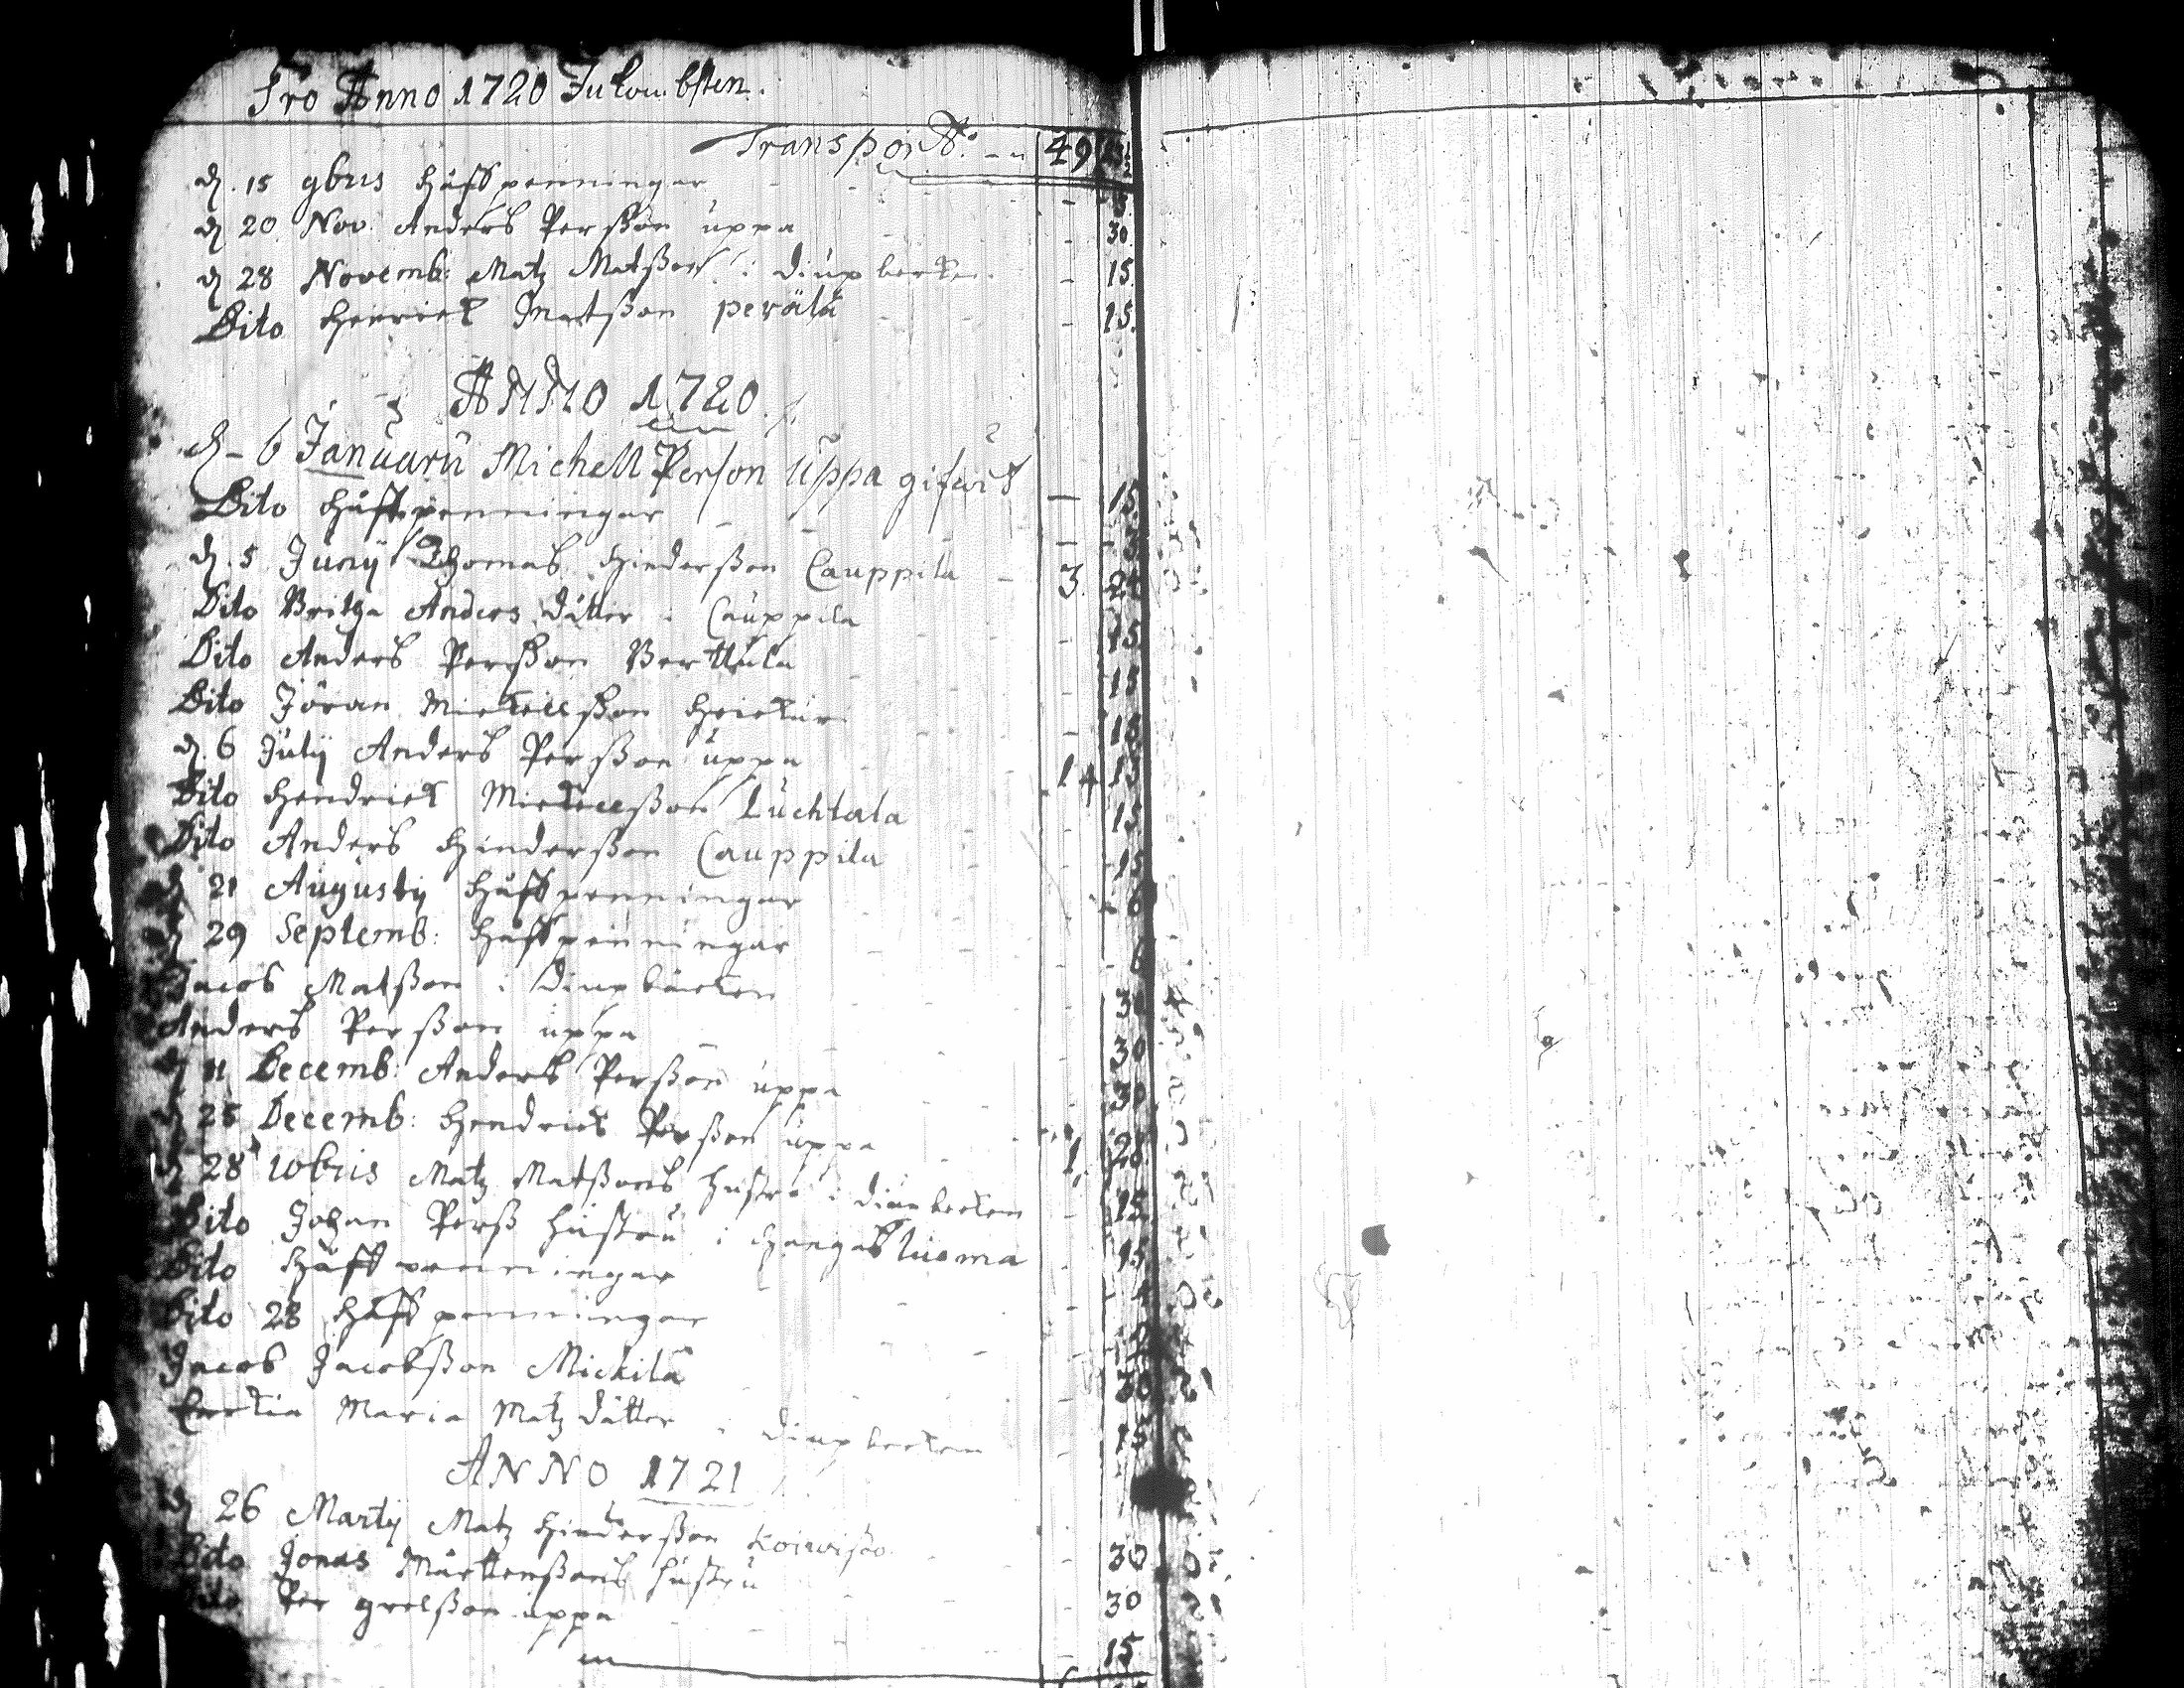 Pro Anno 1720 Inkombsten.
Transport. 49
d. 15 9bris Håfspenningar 3
d. 20 Nov. Anders Persson uppa - 30
d. 28 Novemb: Matz Matßon i diupbecken - 15
Dito Henrich Matßon perälä - 15.
ANNO 1720
d. 6 Januarii Michell Person Uppa gifwit — 15
Dito Håfspenningar
d. 5 Junij Thomas Hinderßon Cauppila - 3. 24
Dito Britha Anders dåtter i Cauppila - 15
Dito Anders Perßon Berttula - 15
Dito Jöran Michellßon - 15
d. 6 Julij Anders Perßon uppa 14 15
Dito Hendrich Michellßon Luchtala - 15
Dito Anders Hinderßon Cauppila - 15
d 21 Augusty Håfspenningar - 6
d 29 Septemb: Håfspenningar
Jacob Matßon i Diupbäcken - 30
Anders Perßon uppa - 30
d 11 Decemb: Anders Perßon uppa - 30
d 25 Decemb: Hendrich Perßon uppa 1. 28
d 28 10bris Matz Matßons hustru i diupbecken - 15
Dito Johan Perß hustru i Hangasluoma - 15
Dito Håfspenningar
Dito 28 Håfspenningar
Jacob Jacobßon Mickila - 30
Maria Matz dåtter i diupbecken - 15
ANNO 1721
d 26 Martij Matz Hinderßon Koiwisto - 30
Dito Jonas Mårttenßons hustru - 30
Dito Per grelßon uppa - 15